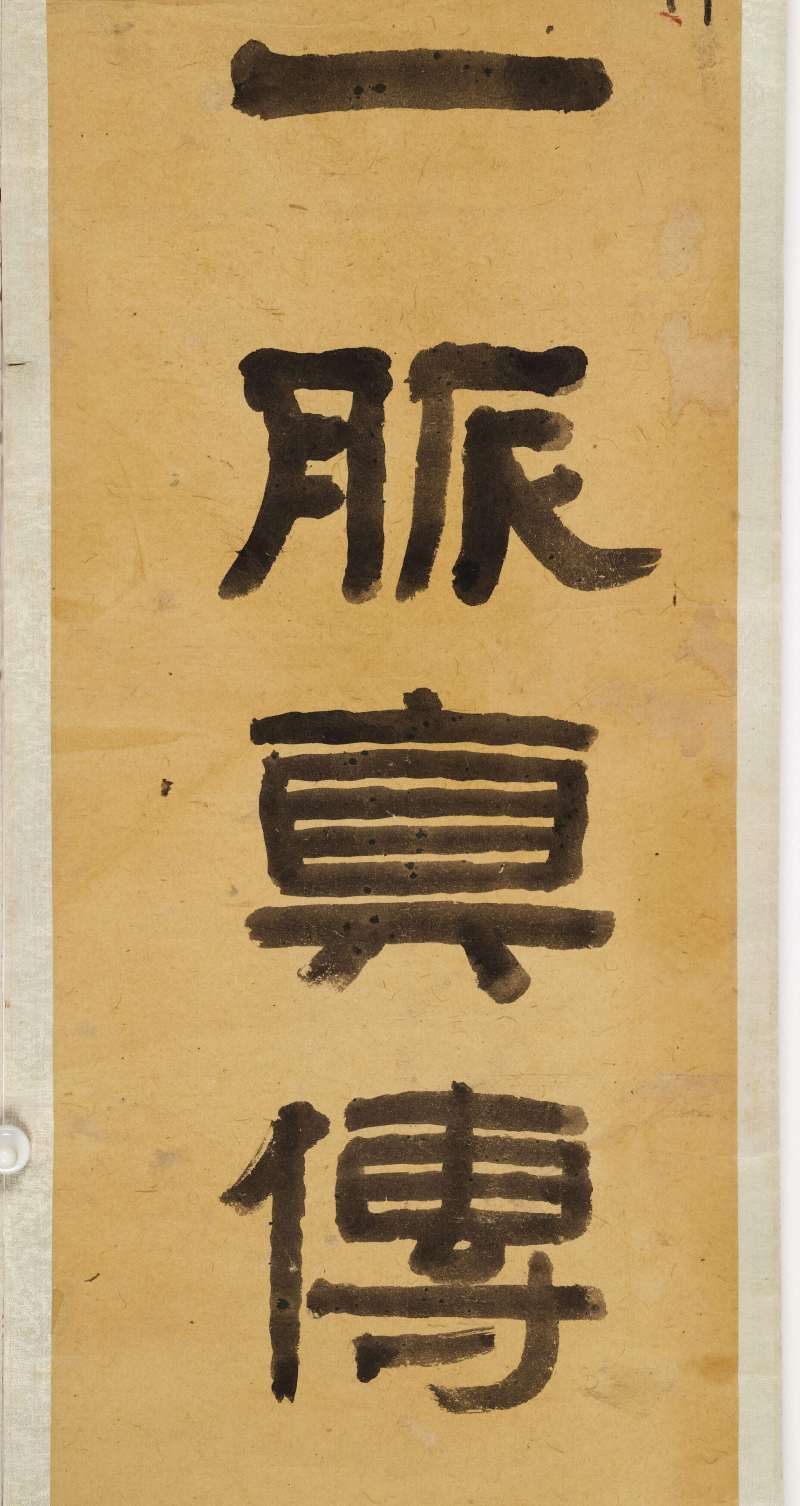 一脈真傳